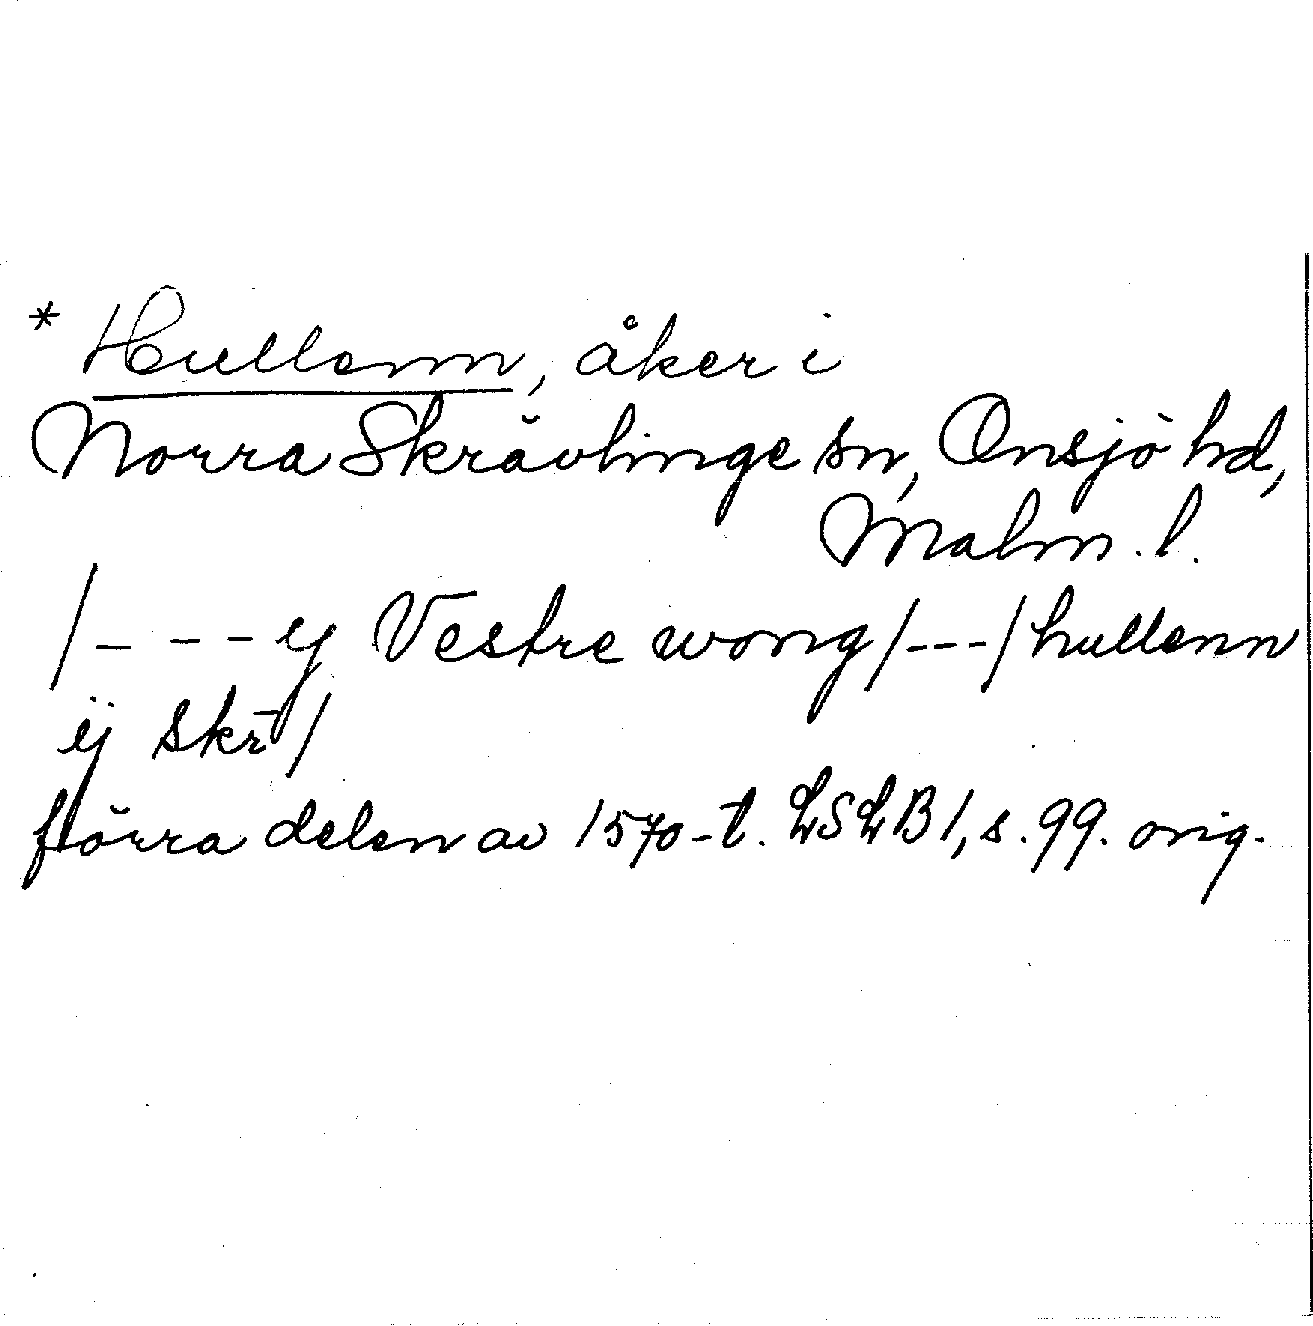 * Hullenn, åker i
Norra Skrävlinge sn, Onsjö hd,
Malm. l.
/- - - - ij Vestre wong/---/hullenn
ij skr̄/
förra delen av 1570-t. LSLB 1, s. 99. orig.